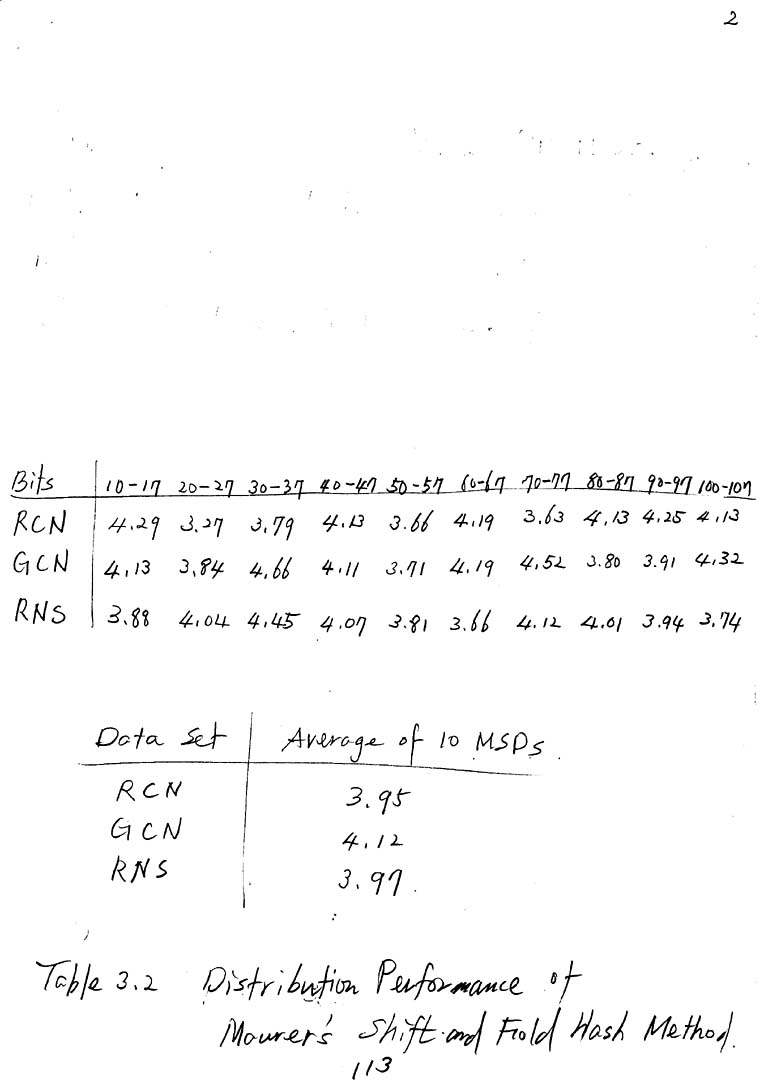 2
Bits 10-17 20-27 30-37 40-47 50-57 60-67 70-77 80-87 90-97 100-107
RCN 4.29 3.27 3.79 4.13 3.66 4.19 3.63 4.13 4.25 4.13
GCN 4.13 3.84 4.66 4.11 3.71 4.19 4.52 3.80 3.91 4.32
RNS 3.88 4.04 4.45 4.07 3.81 3.66 4.12 4.01 3.94 3.74
Data Set Average of 10 MSDs
RCN 3.95
GCN 4.12
RNS 3.97
Table 3.2 Distribution Performance of
Maurer's Shift and Fold Hash Method.
113